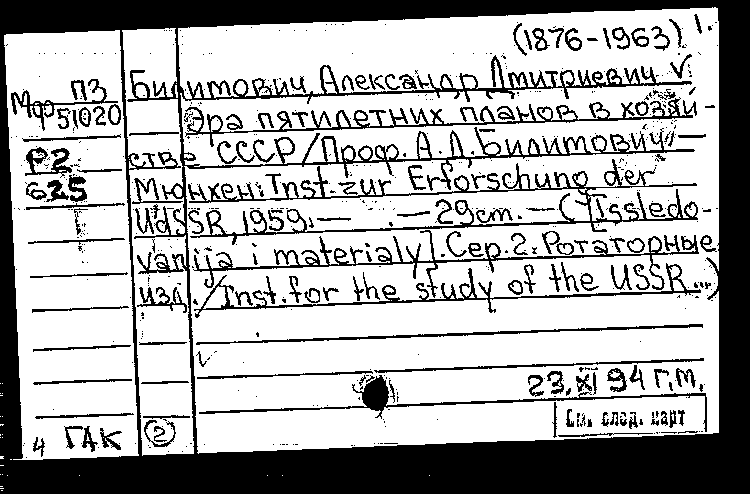 (1876-1963) 1.
ПЗ Билимович, Александр Дмитриевич V
Мфр 51020 Эра пятилетних планов в хозяй-
Р2 стве СССР/Проф. А.Д.Билимович. —
625 Мюнхен: Inst. zur Erforschung der
UdSSR, 1959. — . — 29cm. — ( [Issledo-
vanija i materialy]. Сер.2: Ротаторные
изд. / Inst. for the study of the USSR...)
23.XI 94 г.м.
См. след. карт
4 ГАК 2